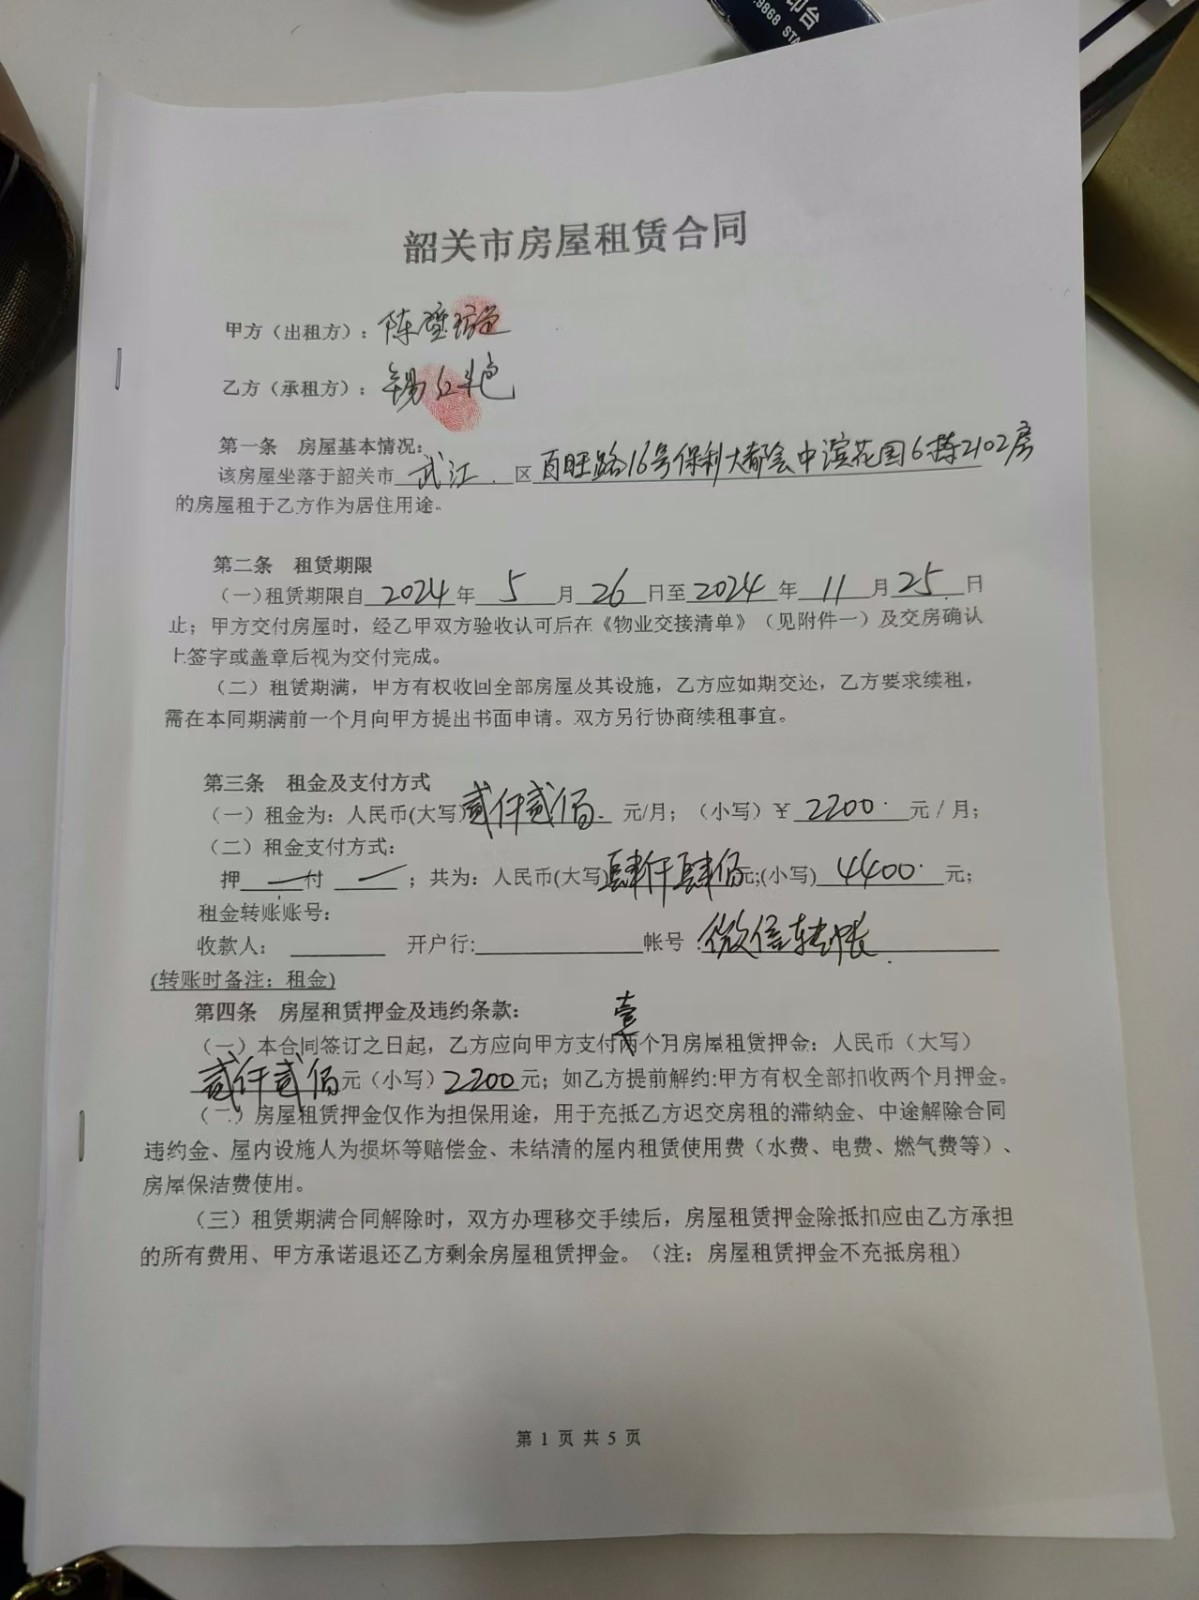 印台
9868 STA
韶关市房屋租赁合同
甲方（出租方）：陈
乙方（承租方）：
第一条 房屋基本情况：
该房屋坐落于韶关市武江区百旺路16号保利大都会中滨花园6栋2102房
的房屋租于乙方作为居住用途。
第二条 租赁期限
（一）租赁期限自2024年5月26日至2024年11月25日
止；甲方交付房屋时，经乙甲双方验收认可后在《物业交接清单》（见附件一）及交房确认
上签字或盖章后视为交付完成。
（二）租赁期满，甲方有权收回全部房屋及其设施，乙方应如期交还，乙方要求续租，
需在本同期满前一个月向甲方提出书面申请。双方另行协商续租事宜。
第三条 租金及支付方式
（一）租金为：人民币(大写)贰仟贰佰元/月；（小写）￥2200元/月；
（二）租金支付方式：
押一付一；共为：人民币(大写)肆仟肆佰元;(小写)4400元；
租金转账账号：
收款人：开户行:帐号微信转帐
(转账时备注：租金)
第四条 房屋租赁押金及违约条款：
壹
（一）本合同签订之日起，乙方应向甲方支付两个月房屋租赁押金：人民币（大写）
贰仟贰佰元（小写）2200元；如乙方提前解约:甲方有权全部扣收两个月押金。
（二）房屋租赁押金仅作为担保用途，用于充抵乙方迟交房租的滞纳金、中途解除合同
违约金、屋内设施人为损坏等赔偿金、未结清的屋内租赁使用费（水费、电费、燃气费等）、
房屋保洁费使用。
（三）租赁期满合同解除时，双方办理移交手续后，房屋租赁押金除抵扣应由乙方承担
的所有费用、甲方承诺退还乙方剩余房屋租赁押金。（注：房屋租赁押金不充抵房租）
第 1 页 共 5 页